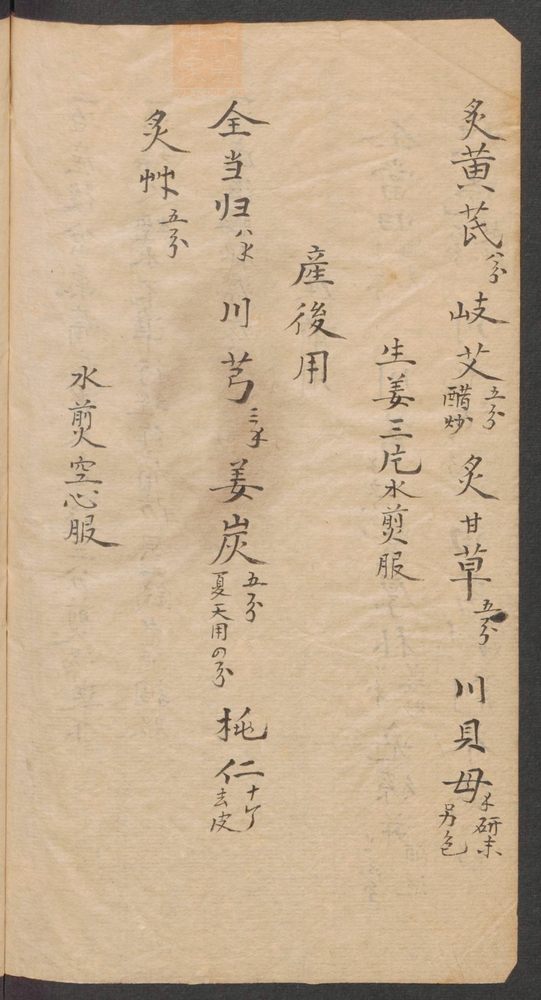 炙黄芪八分 岐艾五分醋炒 炙甘草五分 川貝母研末另包
生姜三片水煎服
産後用
全当归 川芎 姜炭五分夏天用四分 桃仁十丁去皮
炙艸五分
水煎空心服